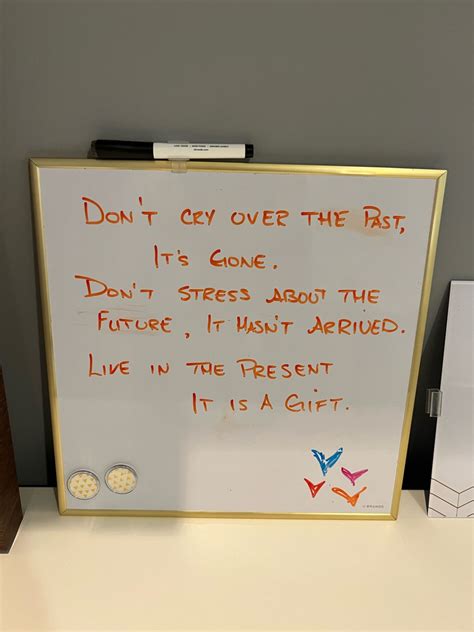 DON'T CRY OVER THE PAST,
IT'S GONE.
DON'T STRESS ABOUT THE
FUTURE, IT HASN'T ARRIVED.
LIVE IN THE PRESENT
IT IS A GIFT.